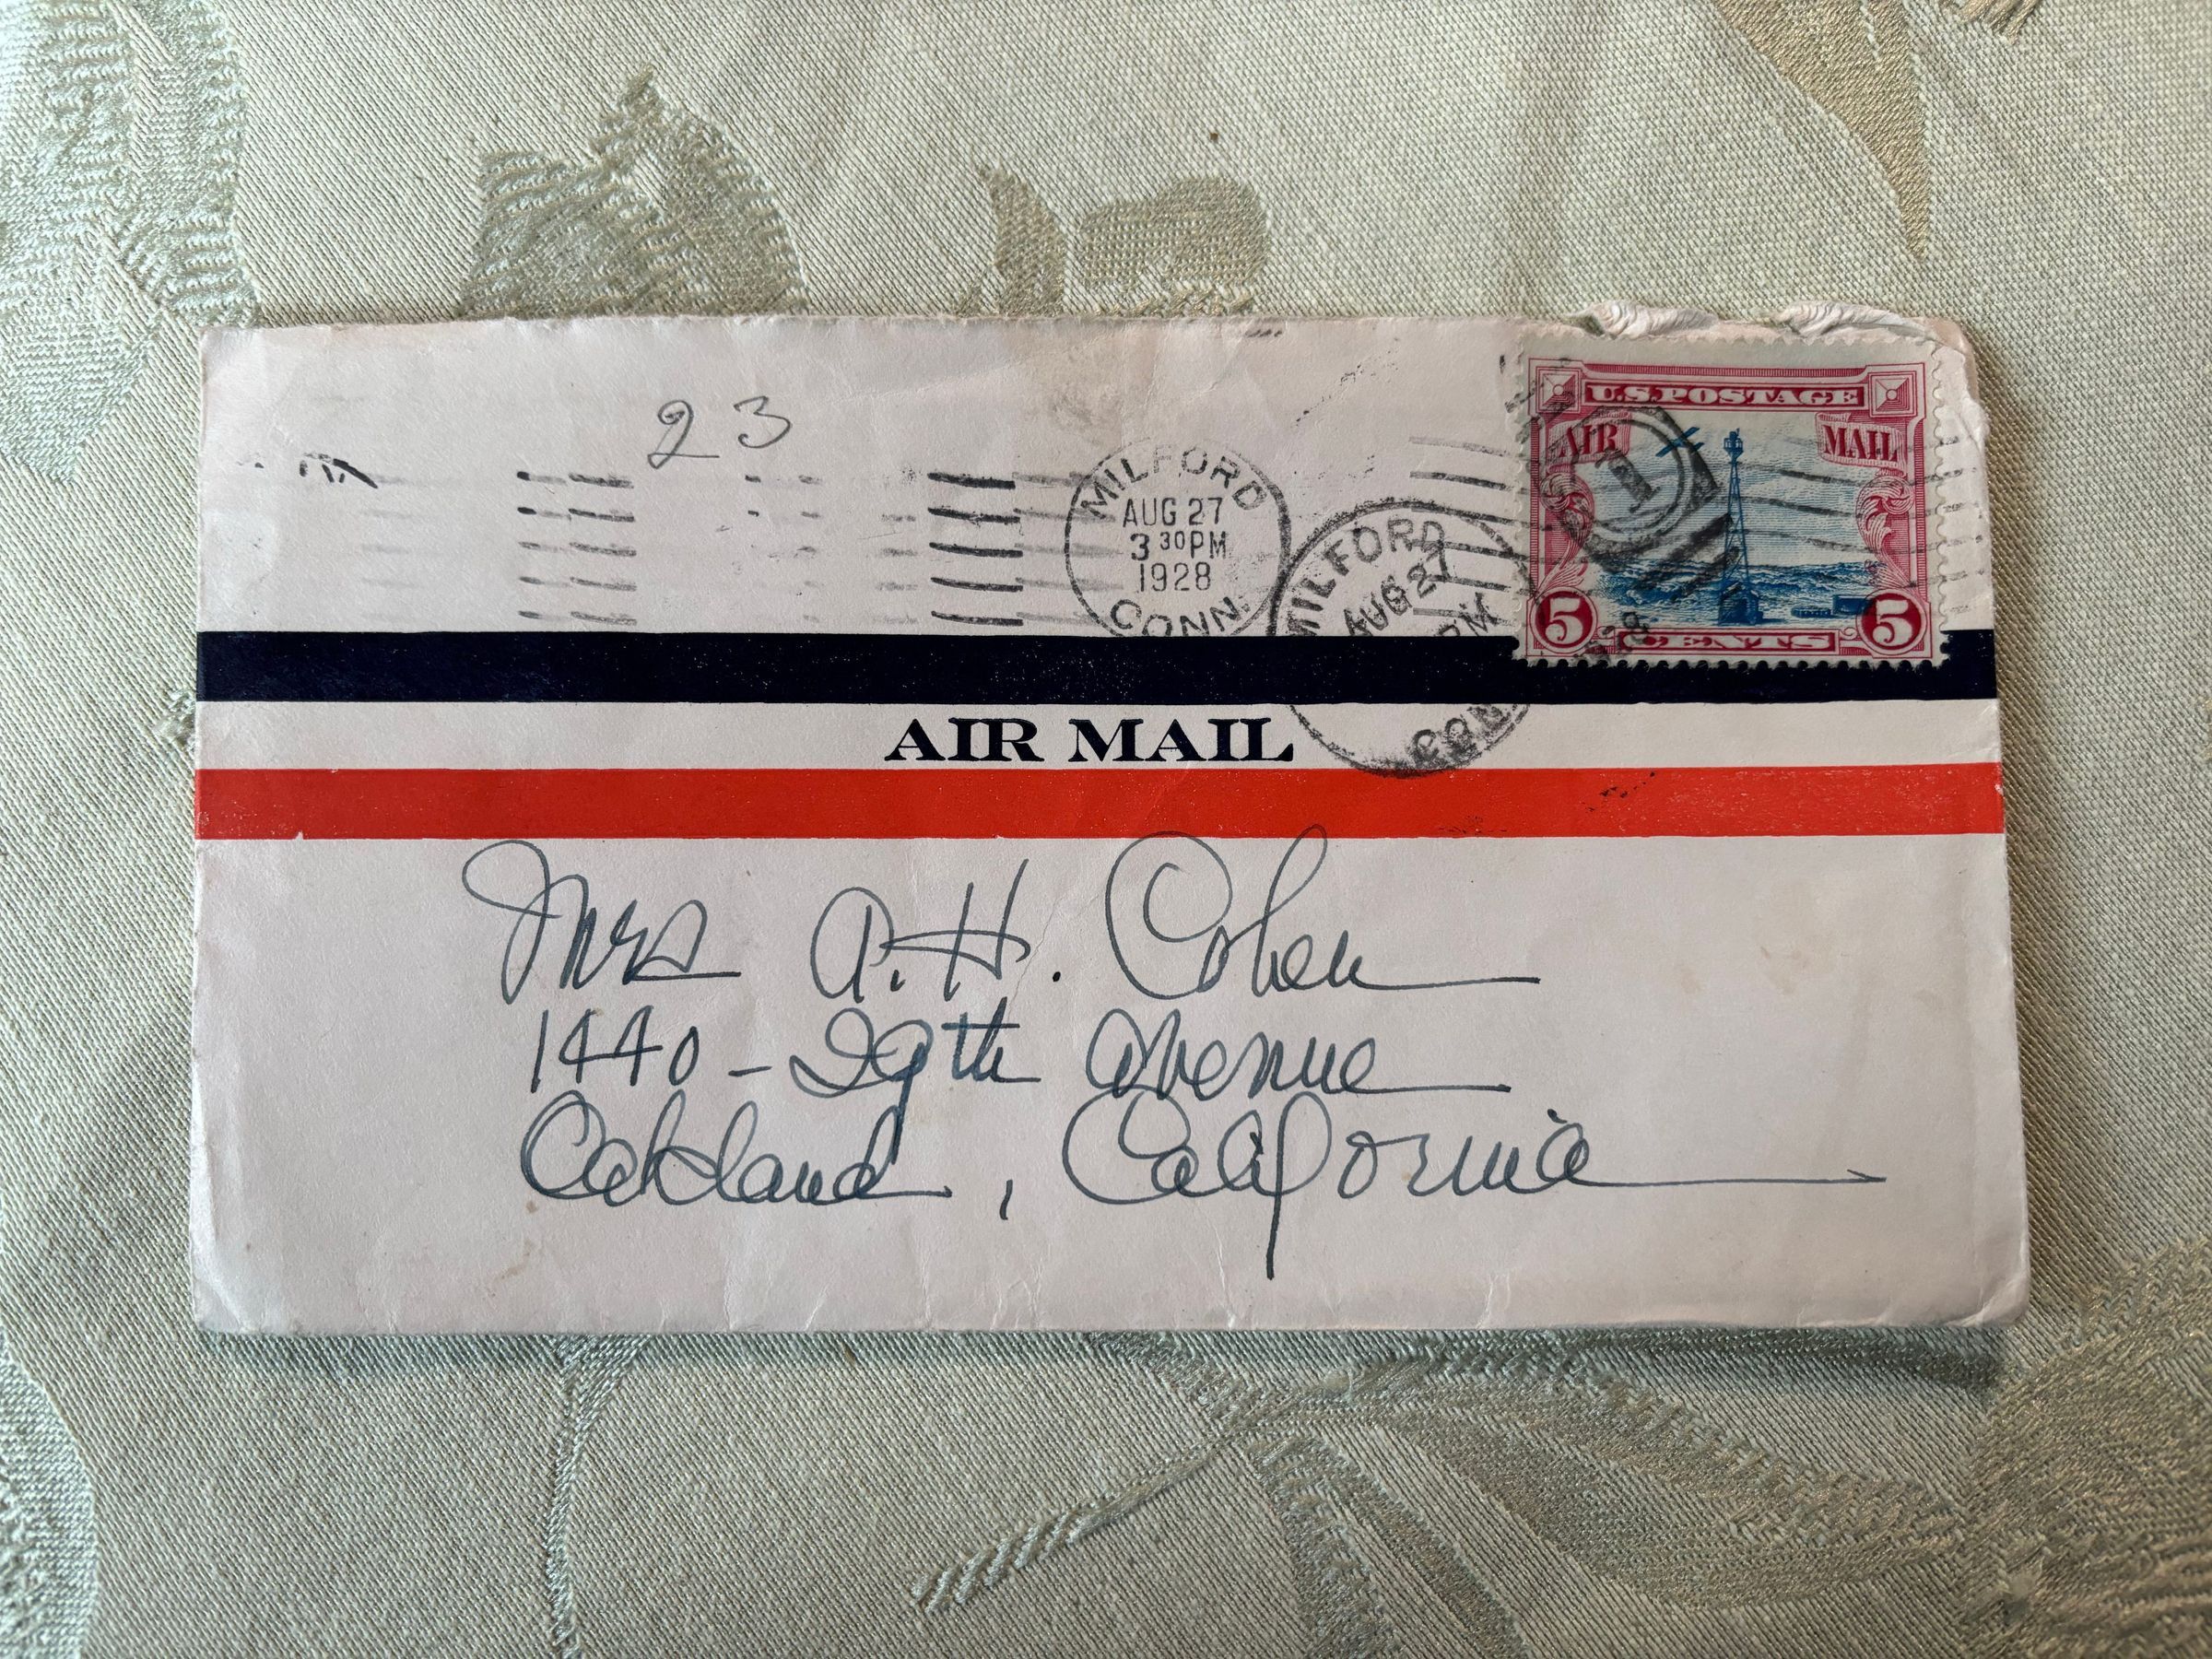 23
MILFORD
AUG 27
3 30 PM
1928
CONN.
MILFORD
AUG 27
PM
CONN
1
U.S. POSTAGE
AIR MAIL
5 CENTS 5
AIR MAIL
Mrs A. H. Cohen
1440 - 29th Avenue
Oakland, California